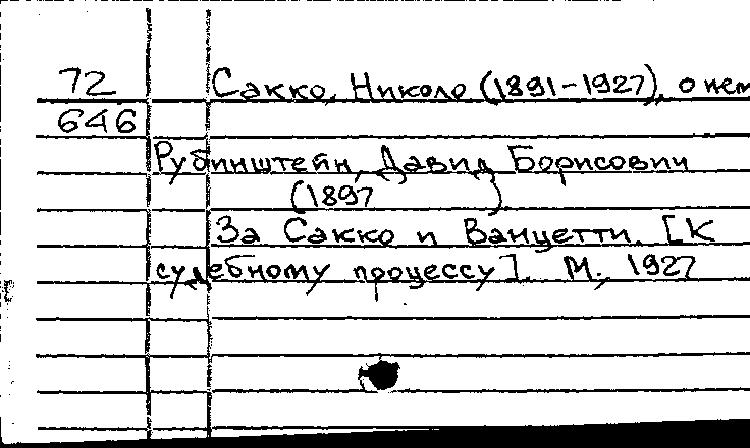 72 Сакко, Николо (1891-1927), о нем
646
Рубинштейн, Давид Борисович
(1897 ).
За Сакко и Ванцетти. [К
судебному процессу]. М., 1927